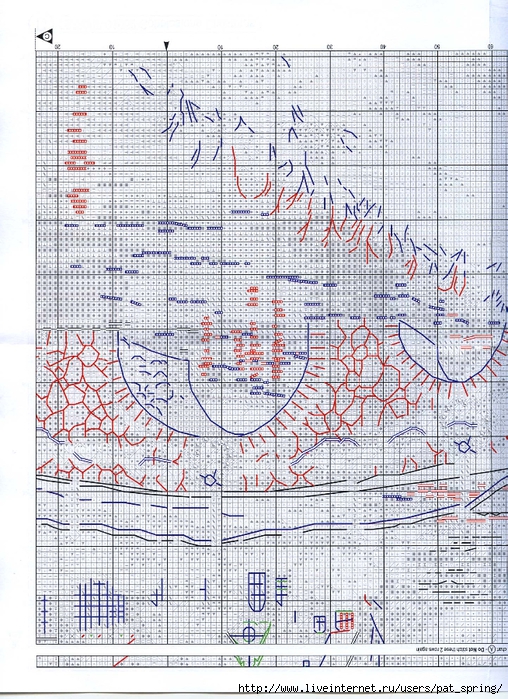 20 10 10 20 30 40 50 60
chart Do Not stitch these 2 rows again
http://www.liveinternet.ru/users/pat_spring/